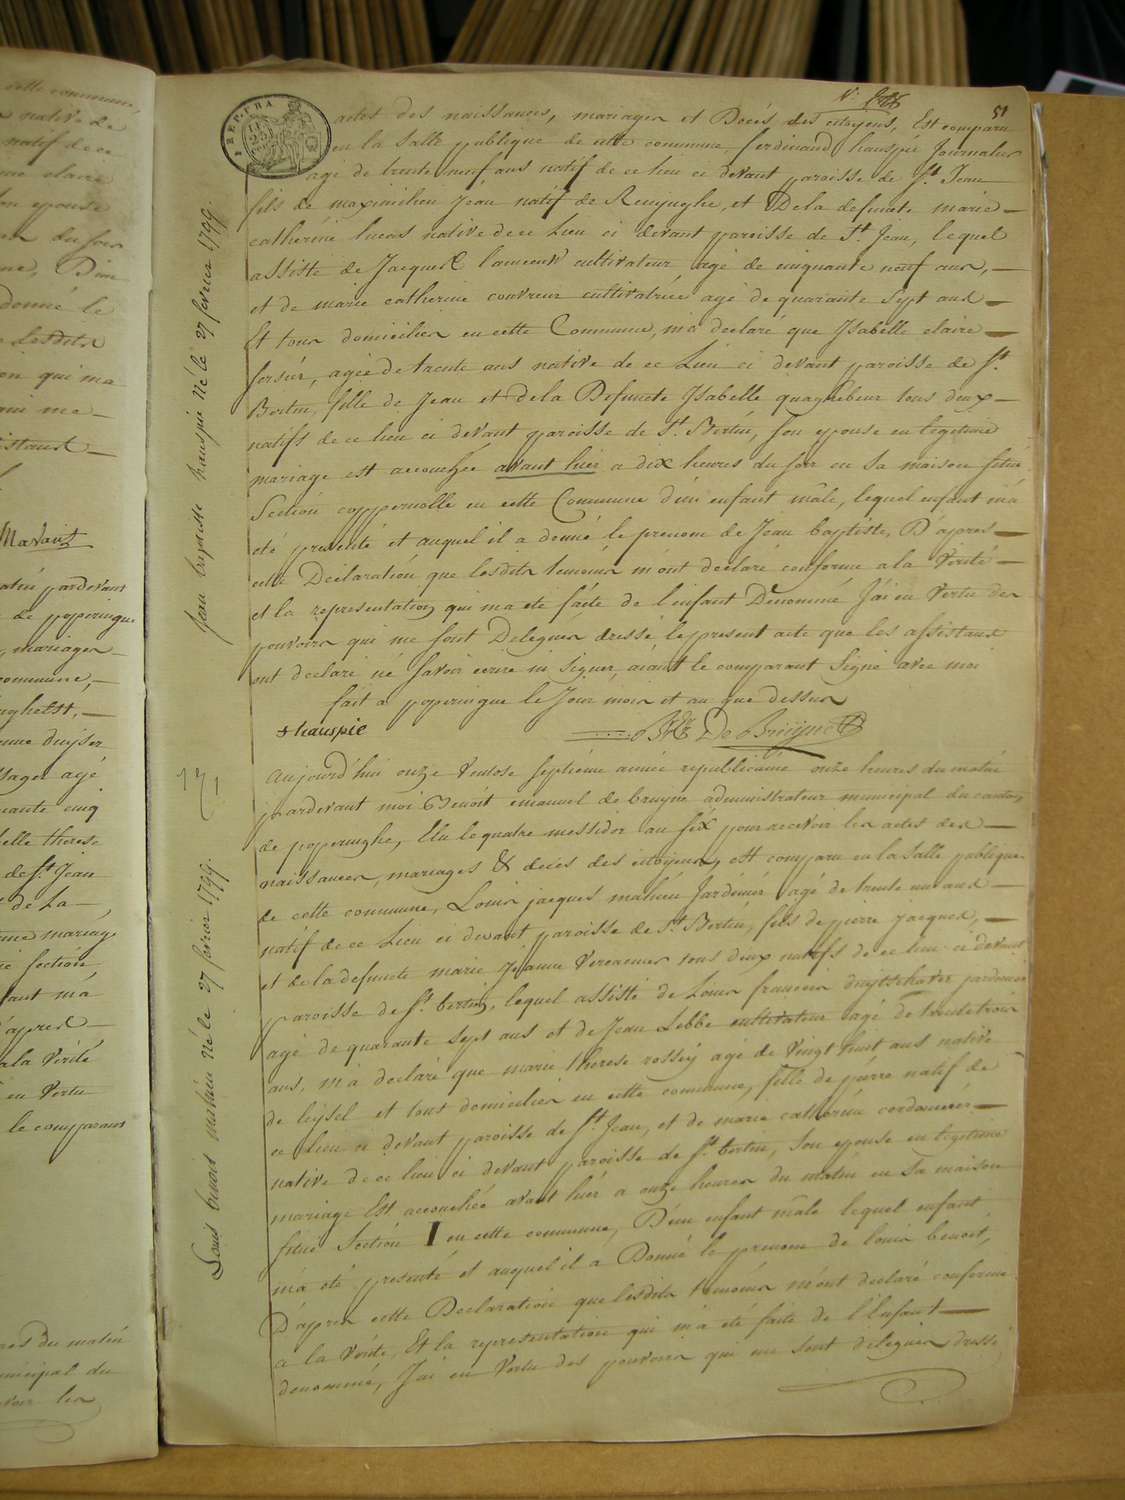 51
REP. FRA
actes des naissances, mariages et Décés des citoyens, Est comparu
en la Salle publique de cette commune ferdinand hauspie Journalier
agé de trente neuf ans natif de ce lieu ci devant paroisse de St. Jean
fils de maximilien Jean natif de Reninghe, et De la defuncte marie
catherine lucas native de ce Lieu ci devant paroisse de St. Jean, lequel
assisté de Jacques cultivateur agé de cinquante neuf ans,
et de marie catherine couvreur cultivatrice agé de quarante Sept ans
Et tous domiciliés en cette Commune, m'a declaré que Isabelle claire
agée de trente ans native de ce Lieu ci devant paroisse de St.
Bertin, fille de Jean et de la Defuncte Isabelle quaghebeur tous deux
natifs de ce lieu ci devant paroisse de St. Bertin, son epouse en legitime
mariage est accouchée avant hier a dix heures du soir en Sa maison située
Section coppernolle en cette Commune d'un enfant mâle, lequel enfant m'a
eté presenté et auquel il a donné le prenom de Jean baptiste, D'apres
cette Déclaration que lesdits temoins m'ont declaré conforme a la Verité
et la representation qui m'a eté faite de l'enfant Dénommé J'ai en Vertu des
pouvoirs qui me sont Delegués dressé le present acte que les assistans
ont declaré né savoir ecrire ni signer, aiant le comparant Signé avec moi
fait a poperingue le Jour mois et an que dessus
hauspie De Bruyne
Jean baptiste hauspie Né le 27 février 1799.
Aujourd'hui onze Ventose septiéme année republicaine onze heures du matin
pardevant moi Benoit emanuel de bruyne administrateur municipal du canton
de poperinghe, Elu le quatre messidor an six pour recevoir les actes des
naissances, mariages & decès des citoyens, est comparu en la Salle publique
de cette commune, Louis jacques mahieu Jardinier agé de trente un ans
natif de ce Lieu ci devant paroisse de St. Bertin, fils de pierre jacques,
et de la defuncte marie Jeanne Vercamer tous deux natifs de ce lieu ci devant
paroisse de St. bertin, lequel assisté de Louis francois duytschaver
agé de quarante sept ans et de Jean Lebbe cultivateur agé de trente trois
ans, m'a declaré que marie therese rossey agé de vingt huit ans native
de leysel et tout domiciliés en cette commune, fille de pierre natif de
ce lieu ci devant paroisse de St. Jean, et de marie catherine
native de ce lieu ci devant paroisse de St. bertin, Son epouse en legitime
mariage Est accouchée avant hier a onze heures du matin en Sa maison
situé Section I en cette commune, D'un enfant mâle lequel enfant
m'a eté presenté et auquel il a Donné le prenom de louis benoit,
D'apres cette Declaration que lesdits temoins m'ont declaré conforme
a la Vérité, Et la representation qui m'a eté faite de l'Enfant
denommé, J'ai en Vertu des pouvoirs qui me sont delegués dressé
Louis benoit mahieu Né le 27 février 1799.